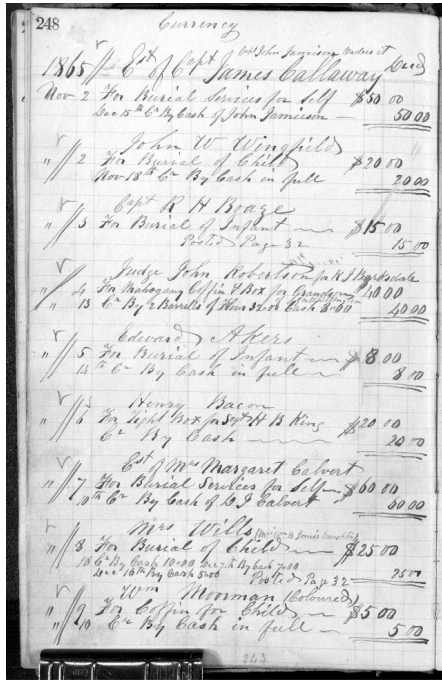 248
Currency
Capt John Jamison Orders it
1865 Est of Capt James Callaway Decd
Nov 2 For Burial Services for Self $50 00
Dec 15th Cr By Cash of John Jamieson 50 00
John W Wingfield
" 2 For Burial of Child $20 00
Nov 18th Cr By Cash in full 20 00
Capt R H Boaze
" 3 For Burial of Infant $15 00
Posted Page 32 15 00
Judge John Robertson for R J Barksdale
" 4 For Mahogany Coffin & Box for Grandson $40 00
" 13 Cr By 2 Barrells of Flour 32 00 Cash 8 00 40 00
Edward Akers
" 5 For Burial of Infant $8 00
14th Cr By Cash in full 8 00
Henry Bacon
" 6 For Tight Box for Sgt H B King $20 00
Cr By Cash 20 00
Est of Mrs Margaret Calvert
" 7 For Burial Services for Self $60 00
10th Cr By Cash of D J Calvert 60 00
Mrs Wills
" 8 For Burial of Child $25 00
18 Cr By Cash 10 00 Dec 7th By Cash 7 00
Dec 16th By Cash 5 00 Posted Page 32 25 00
Wm Moorman (Coloured)
" 9 For Coffin for Child $5 00
" 10 Cr By Cash in full 5 00
243